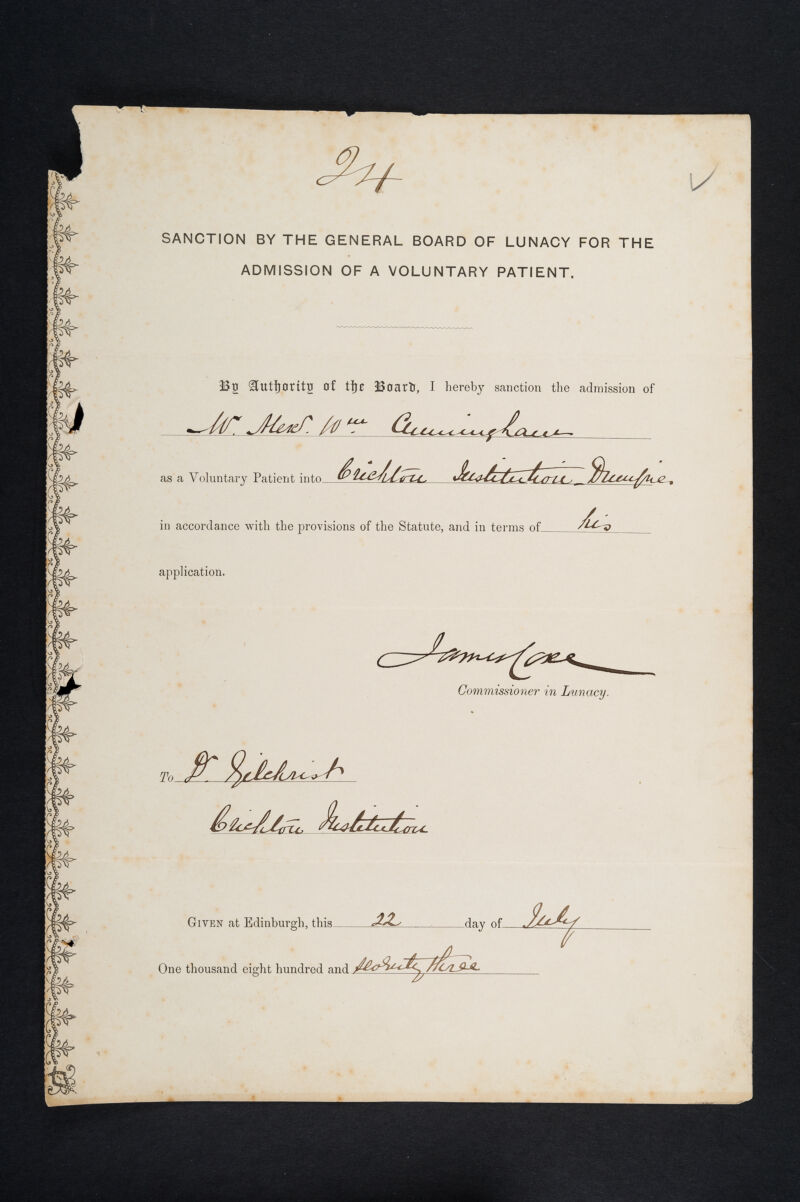 24
SANCTION BY THE GENERAL BOARD OF LUNACY FOR THE
ADMISSION OF A VOLUNTARY PATIENT.
By Authority of the Board, I hereby sanction the admission of
Mr. Alexr. Wm. Cunningham
as a Voluntary Patient into Crichton Institution - Dumfries.
in accordance with the provisions of the Statute, and in terms of his
application.
James Coxe
Commissioner in Lunacy.
To Dr. Gilchrist
Crichton Institution
GIVEN at Edinburgh, this 22 day of July
One thousand eight hundred and seventy three